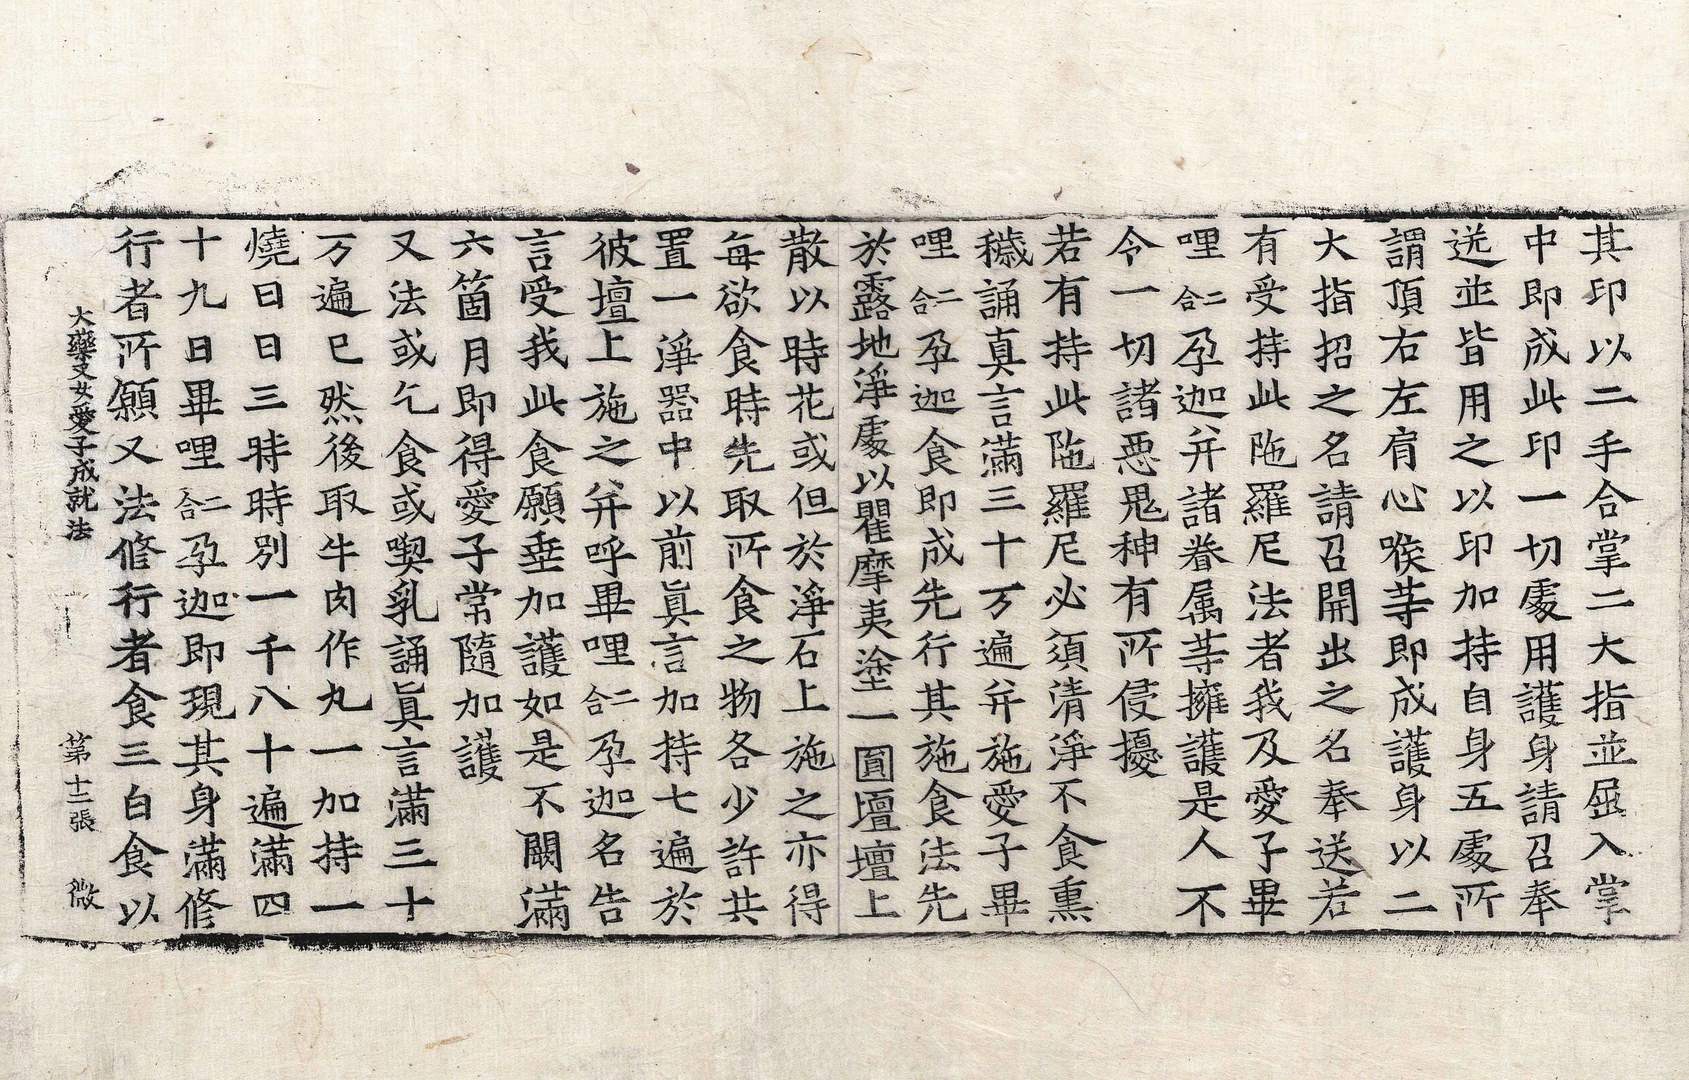 其印以二手合掌二大指並屈入掌
中即成此印一切處用護身請召奉
送並皆用之以印加持自身五處所
謂頂右左肩心喉等即成護身以二
大指招之名請召開出之名奉送若
有受持此陁羅尼法者我及愛子畢
哩二合孕迦并諸眷属等擁護是人不
令一切諸惡鬼神有所侵擾
若有持此陁羅尼必須清淨不食熏
穢誦真言滿三十万遍并施愛子畢
哩二合孕迦食即成先行其施食法先
於露地淨處以瞿摩夷塗一圓壇壇上
散以時花或但於淨石上施之亦得
每欲食時先取所食之物各少許共
置一淨器中以前眞言加持七遍於
彼壇上施之并呼畢哩二合孕迦名告
言受我此食願垂加護如是不闕滿
六箇月即得愛子常隨加護
又法或乞食或喫乳誦眞言滿三十
万遍已然後取牛肉作丸一加持一
燒日日三時時別一千八十遍滿四
十九日畢哩二合孕迦即現其身滿修
行者所願又法修行者食三白食以
大藥叉女愛子成就法 第十二張 微